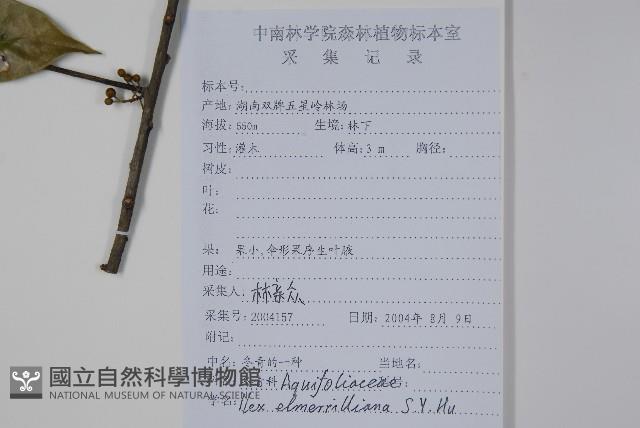 中南林学院森林植物标本室
采集记录
标本号:
产地: 湖南双牌五星岭林场
海拔: 550m 生境: 林下
习性: 灌木 体高: 3 m 胸径:
树皮:
叶:
花:
果: 果小,伞形果序生叶腋
用途:
采集人: 林亲众
采集号: 2004157 日期: 2004年 8月 9日
附记:
中名: 冬青的一种 当地名:
科 Aquifoliaceae
学名: Ilex elmerrilliana S.Y. Hu
國立自然科學博物館
NATIONAL MUSEUM OF NATURAL SCIENCE